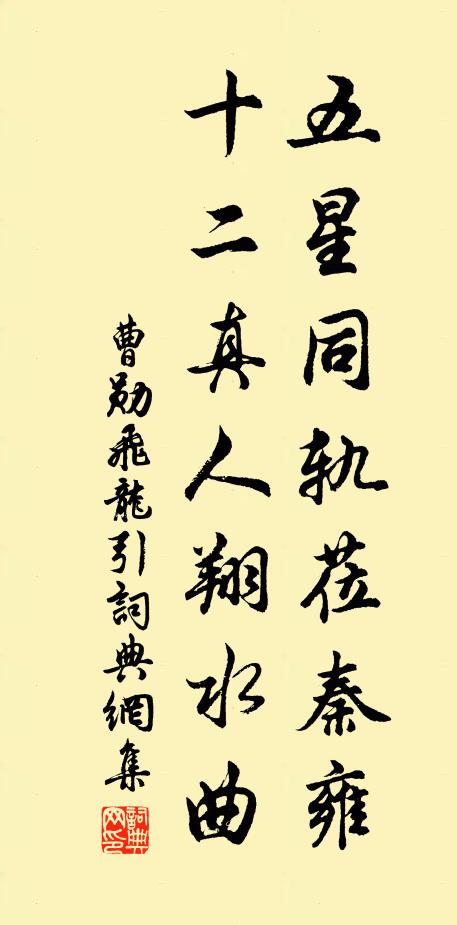 五星同軌莅秦雍
十二真人翔水曲
曹勛飛龍引詞典網集
詞典網印